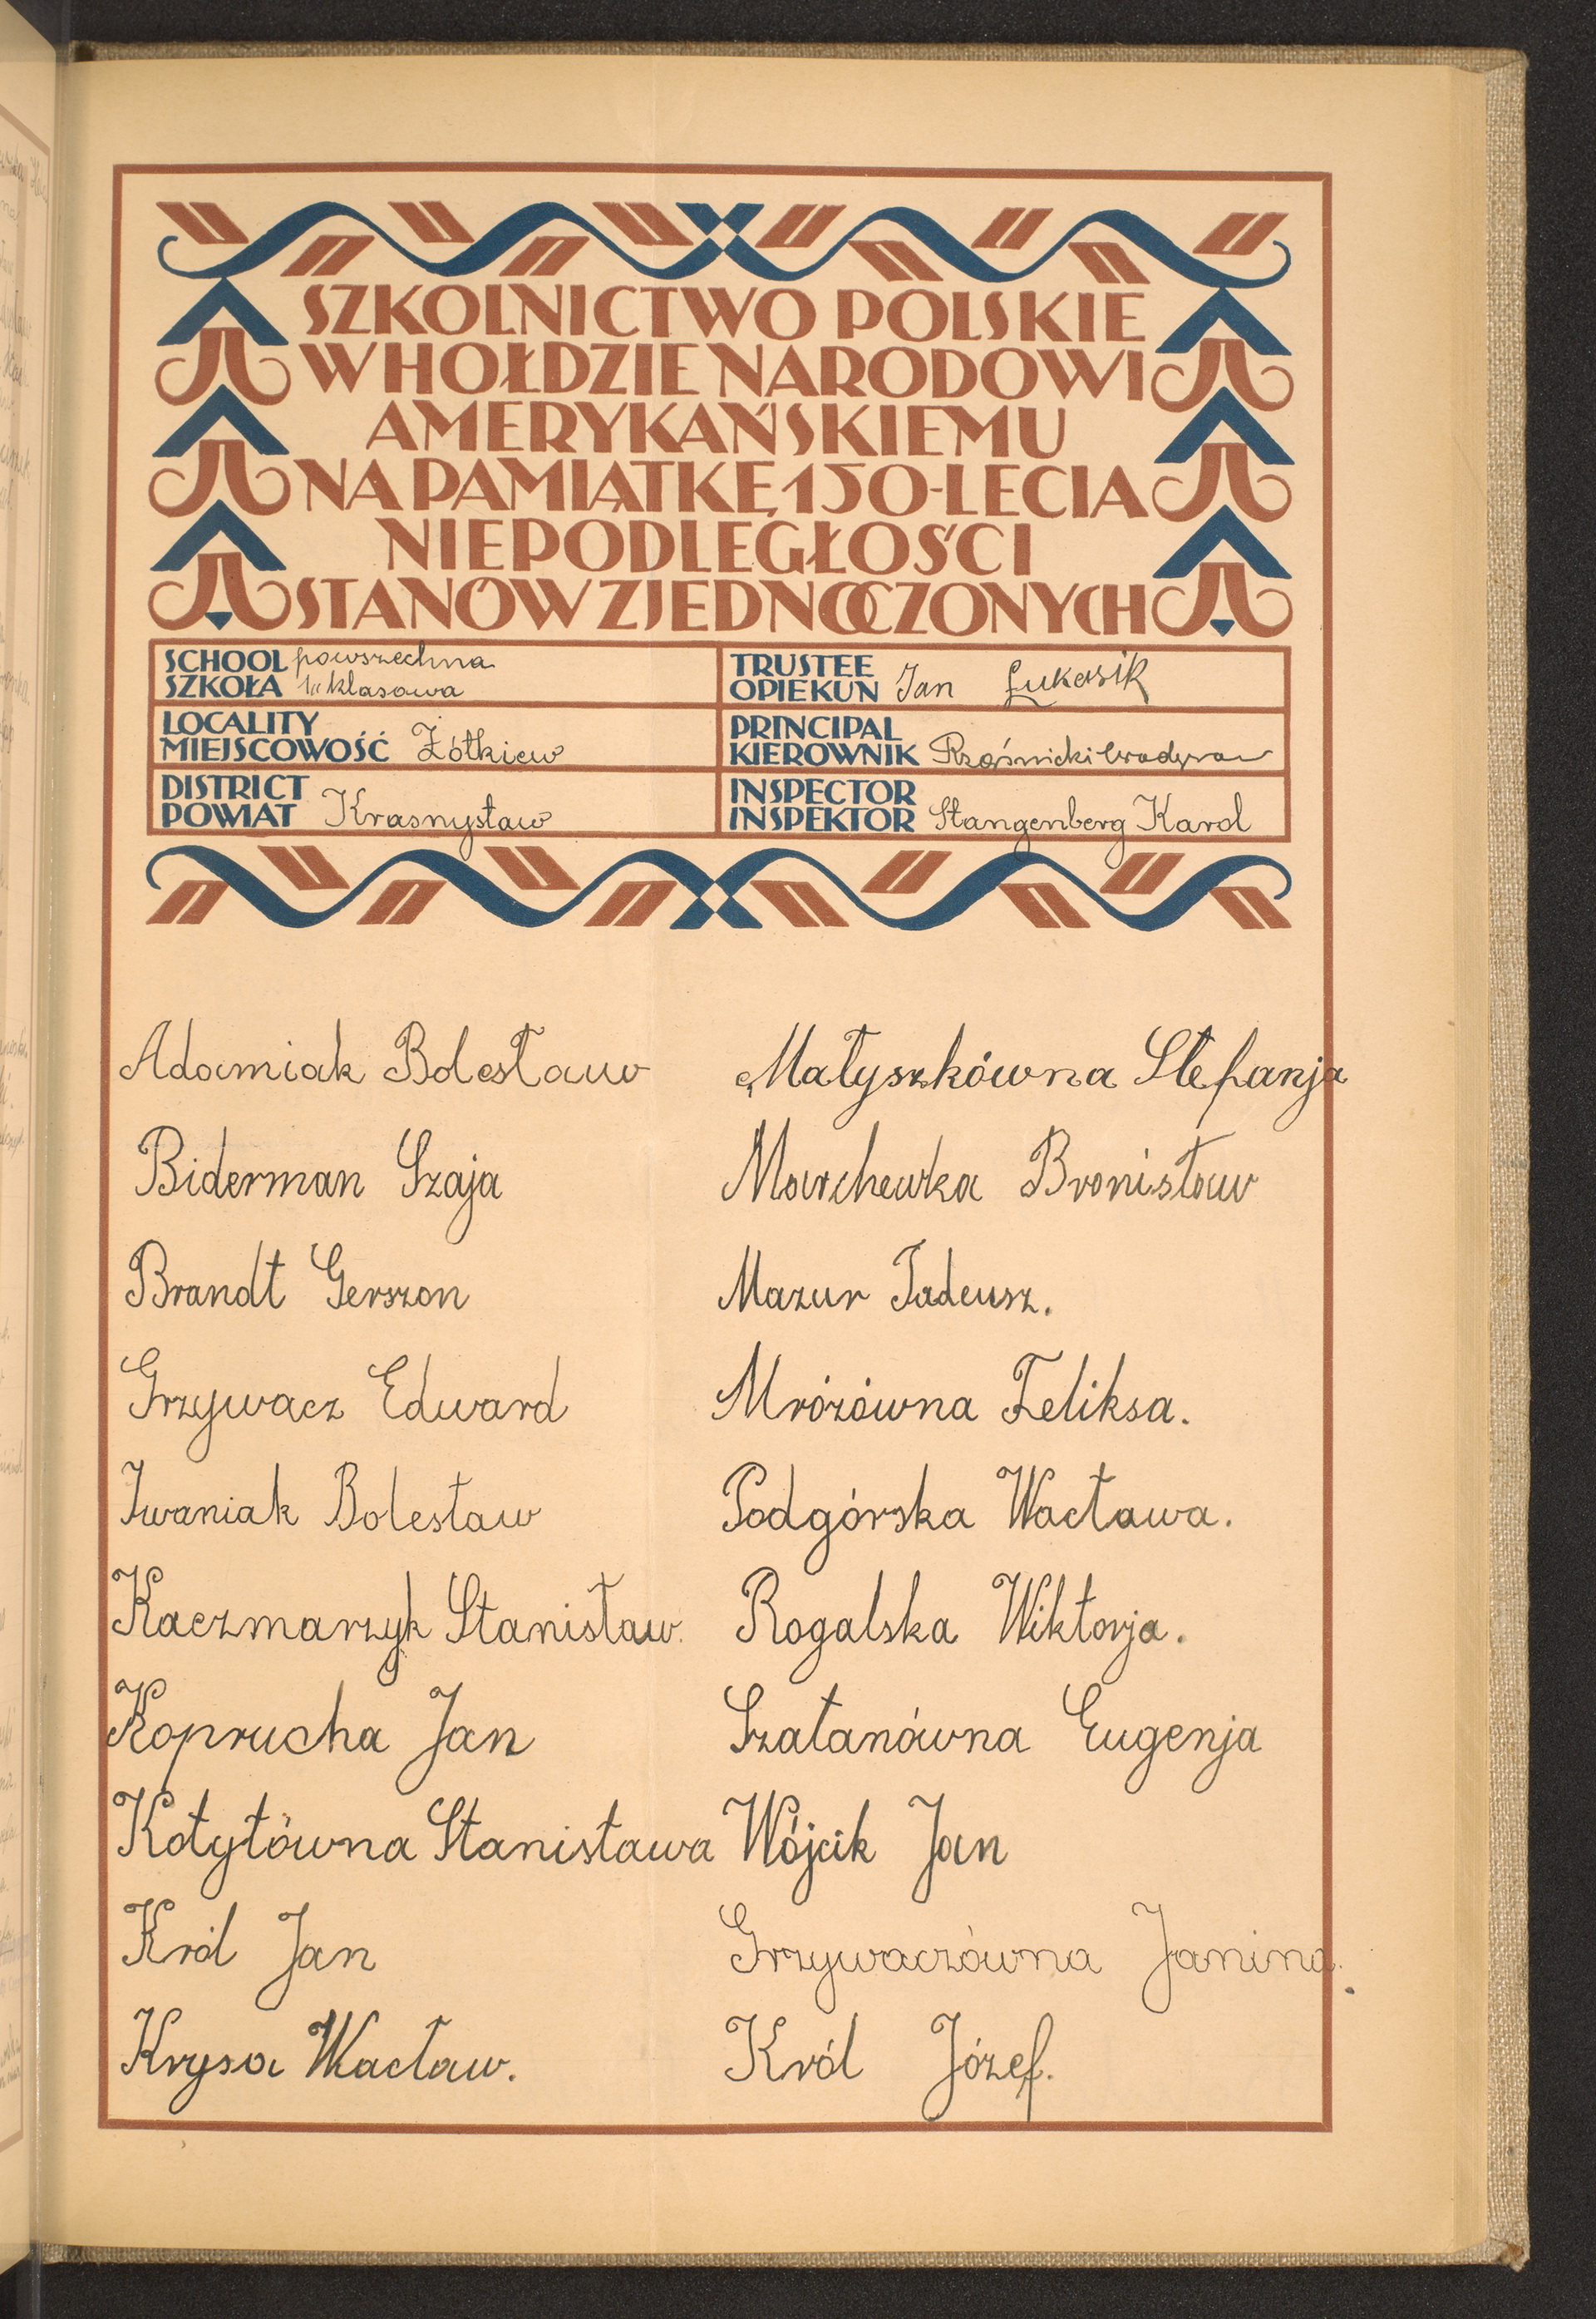 SZKOLNICTWO POLSKIE
W HOŁDZIE NARODOWI
AMERYKAŃSKIEMU
NA PAMIĄTKĘ 150-LECIA
NIEPODLEGŁOŚCI
STANÓW ZJEDNOCZONYCH
SCHOOL
SZKOŁA
powszechna
klasowa
TRUSTEE
OPIEKUN
Jan Łukasik
LOCALITY
MIEJSCOWOŚĆ
Żółkiew
PRINCIPAL
KIEROWNIK
DISTRICT
POWIAT
Krasnystaw
INSPECTOR
INSPEKTOR
Stangenberg Karol
Adamiak Bolesław
Biderman Szaja
Brandt Gerszon
Grzywacz Edward
Iwaniak Bolesław
Kaczmarzyk Stanisław.
Koprucha Jan
Kołytówna Stanisława
Król Jan
Krysa Wacław.
Małyszkówna Stefanja
Marchewka Bronisław
Mazur Tadeusz.
Mrózówna Feliksa.
Podgórska Wacława.
Rogalska Wiktorja.
Szałanówna Eugenja
Wójcik Jan
Grzywaczówna Janina.
Król Józef.